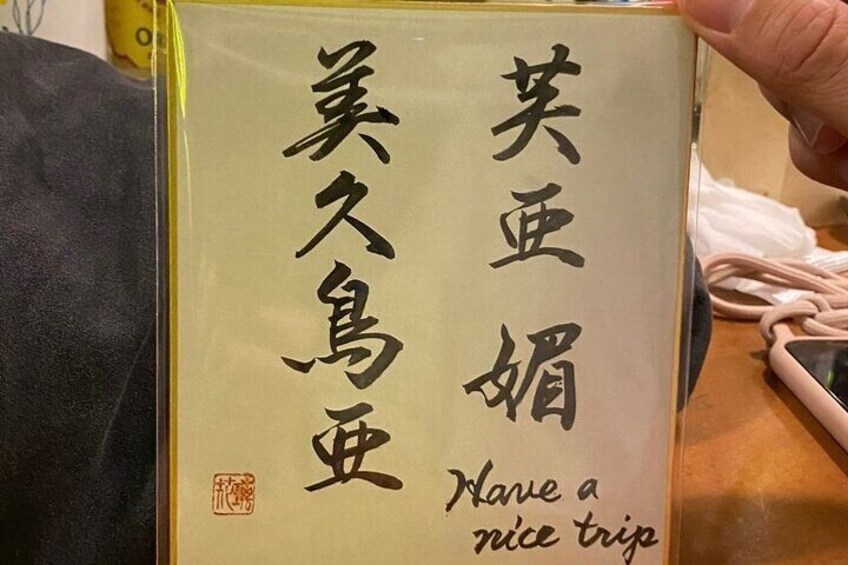 芙亜媚
美久鳥亜
Have a
nice trip